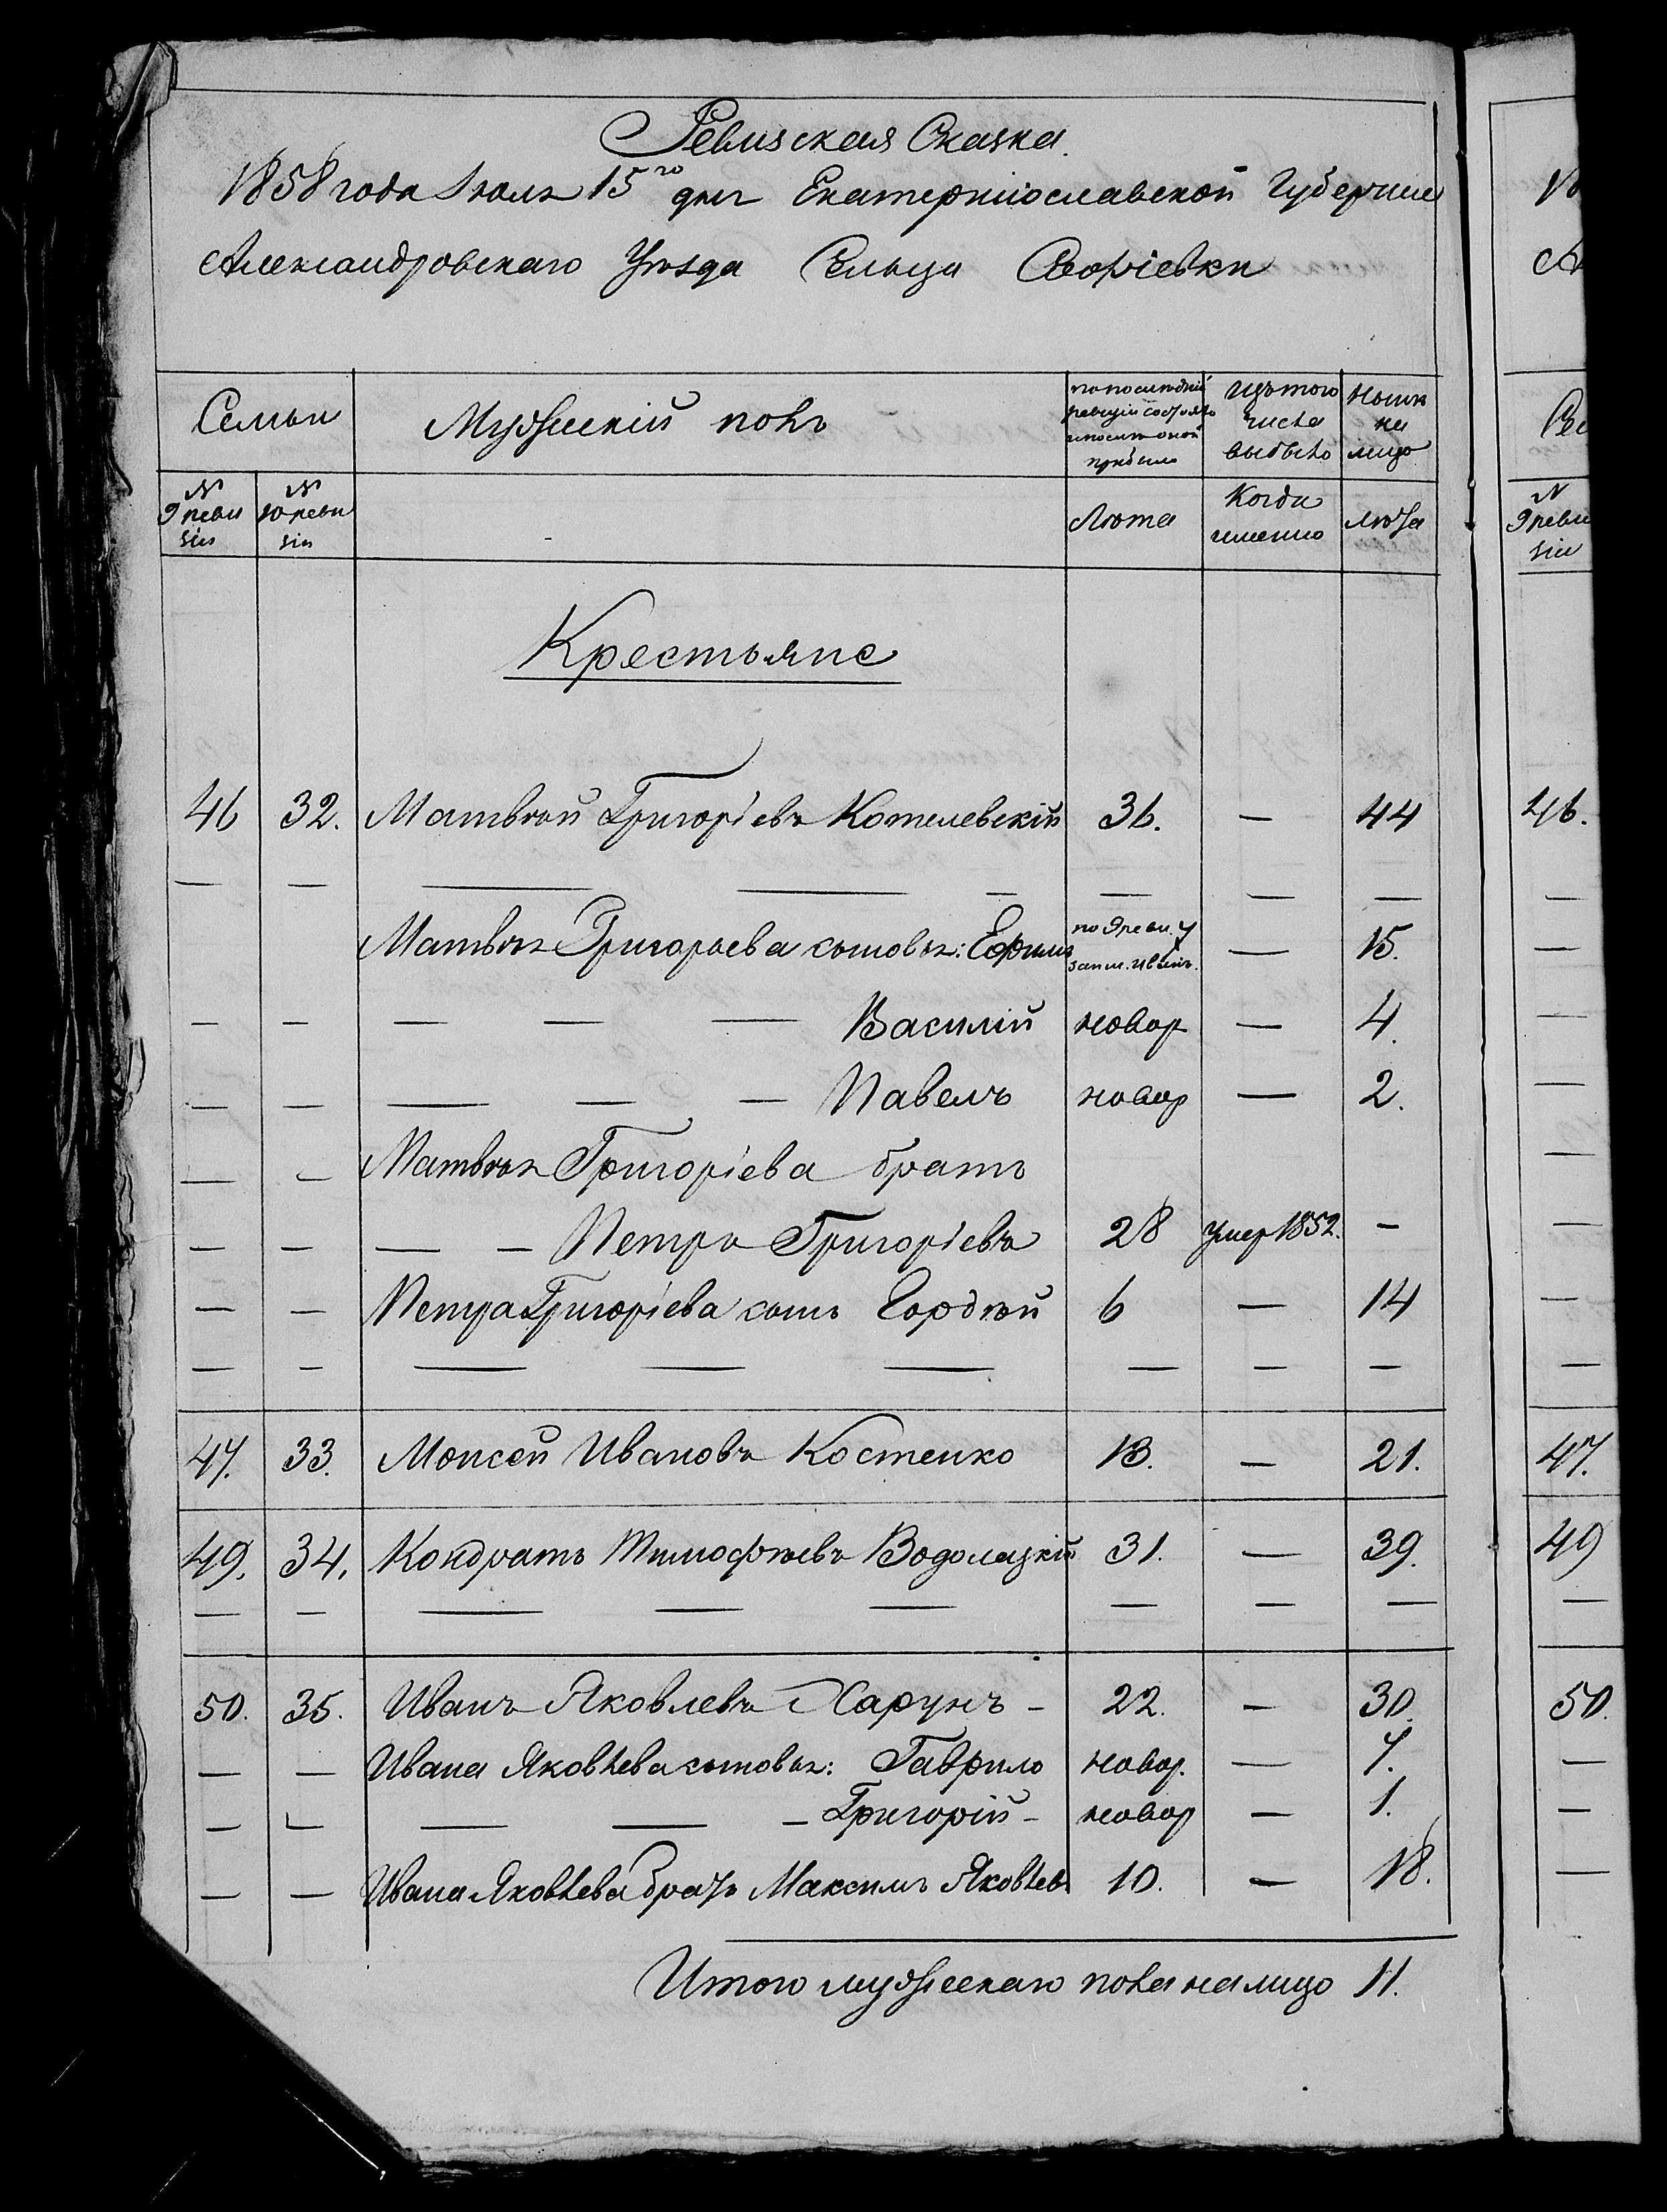 Ревизская Сказка.
1858 года Июля 15го дня Екатеринославской Губернии
Александровскаго Уѣзда Сельца
Семьи
Мужескій полъ
по послѣдній ревизіи состояло и послѣ оной прибыло
изъ того числа выбыло
нынѣ на лицо
№ 9 ревизіи
№ 10 ревизіи
Лѣта
Когда именно
Лѣта
Крестьяне
46 32. Матвѣй Григоріевъ Котелевскій 36. — 44
— — — — — — — —
Матвѣя Григорьева сыновья: Ефимъ по 9 реви. 7 запи. Ивано. — 15.
— — — — — Василій новор — 4.
— — — — — Павелъ новор — 2.
— — Матвѣя Григоріева братъ
— — — — Петръ Григоріевъ 28 умер 1852. —
— — Петра Григоріева сынъ Гордѣй 6 — 14
— — — — — — — —
47. 33. Моисей Ивановъ Костенко 13. — 21.
49. 34. Кондратъ Тимофѣевъ Водолазкій 31. — 39.
— — — — — — — —
50. 35. Иванъ Яковлевъ Харунъ - 22. — 30.
— — Ивана Яковлева сыновья: Гаврило новор. — 7.
— — — — — Григорій - новор — 1.
— — Ивана Яковлева братъ Максимъ Яковлев 10. — 18.
Итого мужескаго пола на лицо 11.
46.
—
—
—
—
—
—
—
—
47.
49
—
50.
—
—
—